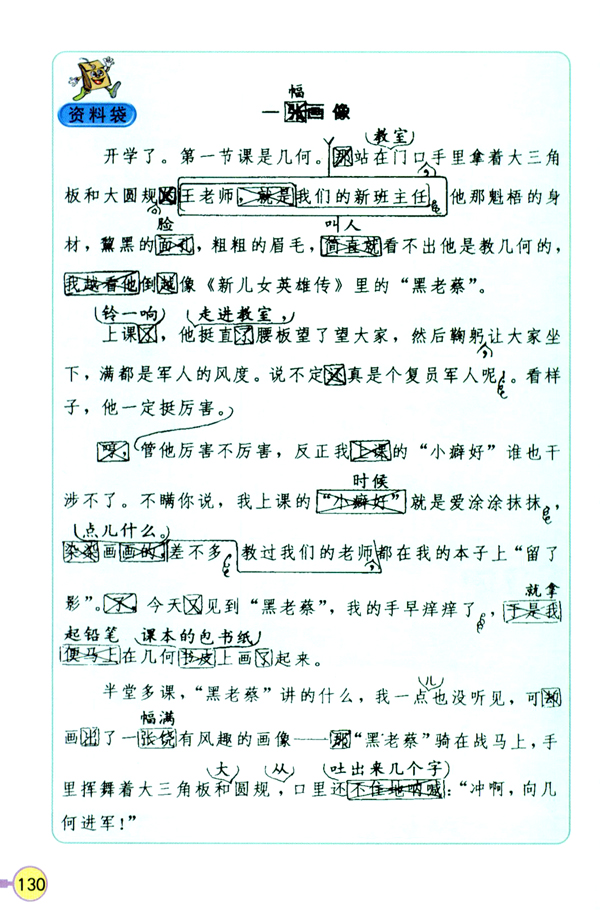 资料袋
幅
一张画像
教室
开学了。第一节课是几何。那站在门口，手里拿着大三角
板和大圆规的王老师，就是我们的新班主任。他那魁梧的身
脸 叫人
材，黧黑的面孔，粗粗的眉毛，简直就看不出他是教几何的，
我越看他倒越像《新儿女英雄传》里的“黑老蔡”。
铃一响 走进教室，
上课了，他挺直了腰板望了望大家，然后鞠躬让大家坐
下，满都是军人的风度。说不定还真是个复员军人呢！。看样
子，他一定挺厉害。
哼，管他厉害不厉害，反正我上课的“小癖好”谁也干
时候
涉不了。不瞒你说，我上课的“小癖好”就是爱涂涂抹抹，
点儿什么。
画画的，差不多，教过我们的老师都在我的本子上“留了
影”。了。今天又见到“黑老蔡”，我的手早痒痒了，于是我
就拿
起铅笔 课本的包书纸
便马上在几何书皮上画了起来。
半堂多课，“黑老蔡”讲的什么，我一点也没听见，可却
儿
幅满
画出了一张饶有风趣的画像——那“黑老蔡”骑在战马上，手
大 从 吐出来几个字
里挥舞着大三角板和圆规，口里还不住地呐喊：“冲啊，向几
何进军！”
130